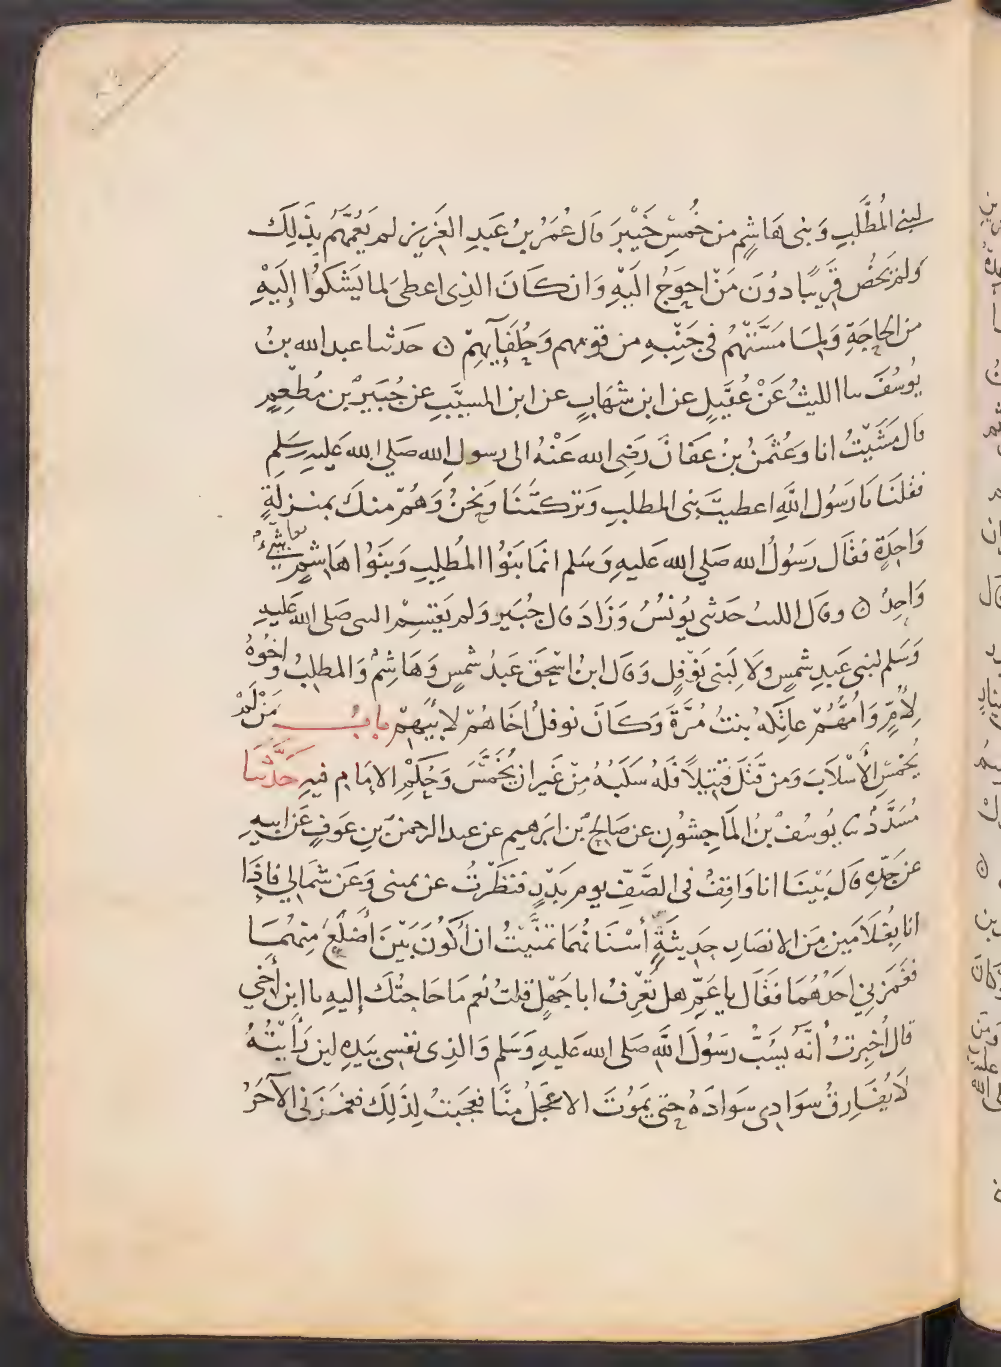 لبني المُطَّلِبِ وَبنى هَاشِمٍ من خُمسِ خَيْبَرَ قال عُمَرُ بنُ عَبدِ العَزِيزِ لم يَعُمَّهُم بِذَلِكَ
ولم يَخُصَّ قَرِيبًا دوُنَ مَنْ احوَجُ الَيْهِ وَان كَانَ الذِى اعطىَ لما يَشكوُا إلَيْهِ
من الحاجَةِ وَلِمَا مَسَّتْهُم فى جَنْبِهِ من قومِهم وَحُلَفَآئِهِمْ ۞ حَدثنا عبد الله بنُ
يُوسُفَ نا الليثُ عَنْ عُقَيْلٍ عن ابن شهَابٍ عن ابن المسيَّبِ عن جُبَيْرِ بْنِ مُطْعِمٍ
قال مَشَيْتُ انا وَعُثمٰنُ بنُ عَفانَ رَضِى الله عَنْهُ الى رسولِ الله صَلى الله عَليهِ وسَلم
فقلنَا يَا رَسُول اللهِ اعطيتَ بَنى المطلبِ وَتركتَنَا وَنحنُ وَهُمْ منكَ بمنزلَةٍ
وَاحِدَةٍ فقَال رَسُولُ الله صَلى الله عَليهِ وَسَلم انمَا بَنوُا المُطلِبِ وَبَنوُا هَاشِمٍ شَيْءٌ
وَاحِدٌ ۞ وقال الليث حَدثنى يُونسُ وَزَادَ قال جُبَير ولم يَقسِمْ النبى صَلى الله عَليهِ
وَسَلم لبنى عَبدِ شمسٍ ولَا لِبَنى نَوْفلٍ وَقال ابنُ اسْحٰق عَبدُ شمسٍ وَهَاشِمٌ وَالمطلبُ اخْوَهُ
لِأُمٍّ وَامُّهُمْ عاتِكَةُ بنتُ مُرَّةَ وَكَانَ نوفلُ اخَاهُمْ لابِيهِمْ بابُ مَنْ لَمْ
يُخمّسِ الأسْلَابَ وَمن قَتلَ قَتِيلًا فَلهُ سَلَبُهُ مِنْ غَيرِ ان يُخَمَّسَ وَحُكْمِ الامَامِ فيهِ حَدَّثنَا
مُسَدَّدٌ نا يُوسُفُ بنُ المَاجِشُونِ عن صَالِحِ بْنِ ابرَهيم عن عبد الرحمنِ بنِ عَوفٍ عَن ابيهِ
عن جَدِّهِ قال بَيْنَا انا وَاقِفٌ فى الصَّفِّ يومَ بَدْرٍ فنَظَرْتُ عن يمينى وَعَن شِمَالي فإذَا
انا بغُلَامَينِ مِنَ الانصَارِ حَدِيثَةٍ أسْنَانُهمَا تَمنَّيْتُ ان أكُونَ بَيْنَ أضلعَ مِنْهُمَا
فغَمَزنِي احَدُهُمَا فقَال يا عَمِّ هل تَعْرِفُ ابا جَهْلٍ قلتُ نَعم مَا حَاجتُكَ إليهِ يا ابن أخي
قال أُخبِرتُ أنَّه يَسُبُّ رَسُولَ اللهِ صَلى الله عَليهِ وَسَلم وَالذِى نفسِى بيَدِهِ لَين رَأَيْتُهُ
لَا يُفَارِقُ سوَادِى سَوادَهُ حتى يمَوُتَ الاعجَلُ مِنَّا فعجَبتُ لِذَلِكَ فغمَزَنى الآخَرُ